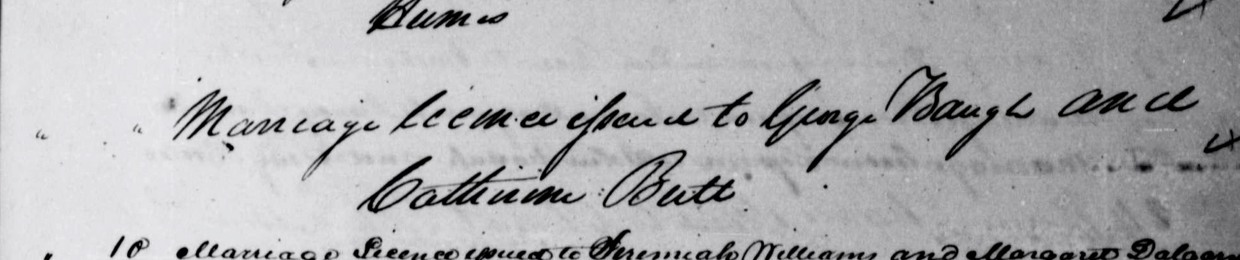 Humes
" " Marriage licence issued to George Baugh and
Catherine Butt
" 10 Marriage Licence issued to Jeremiah Williams and Margaret